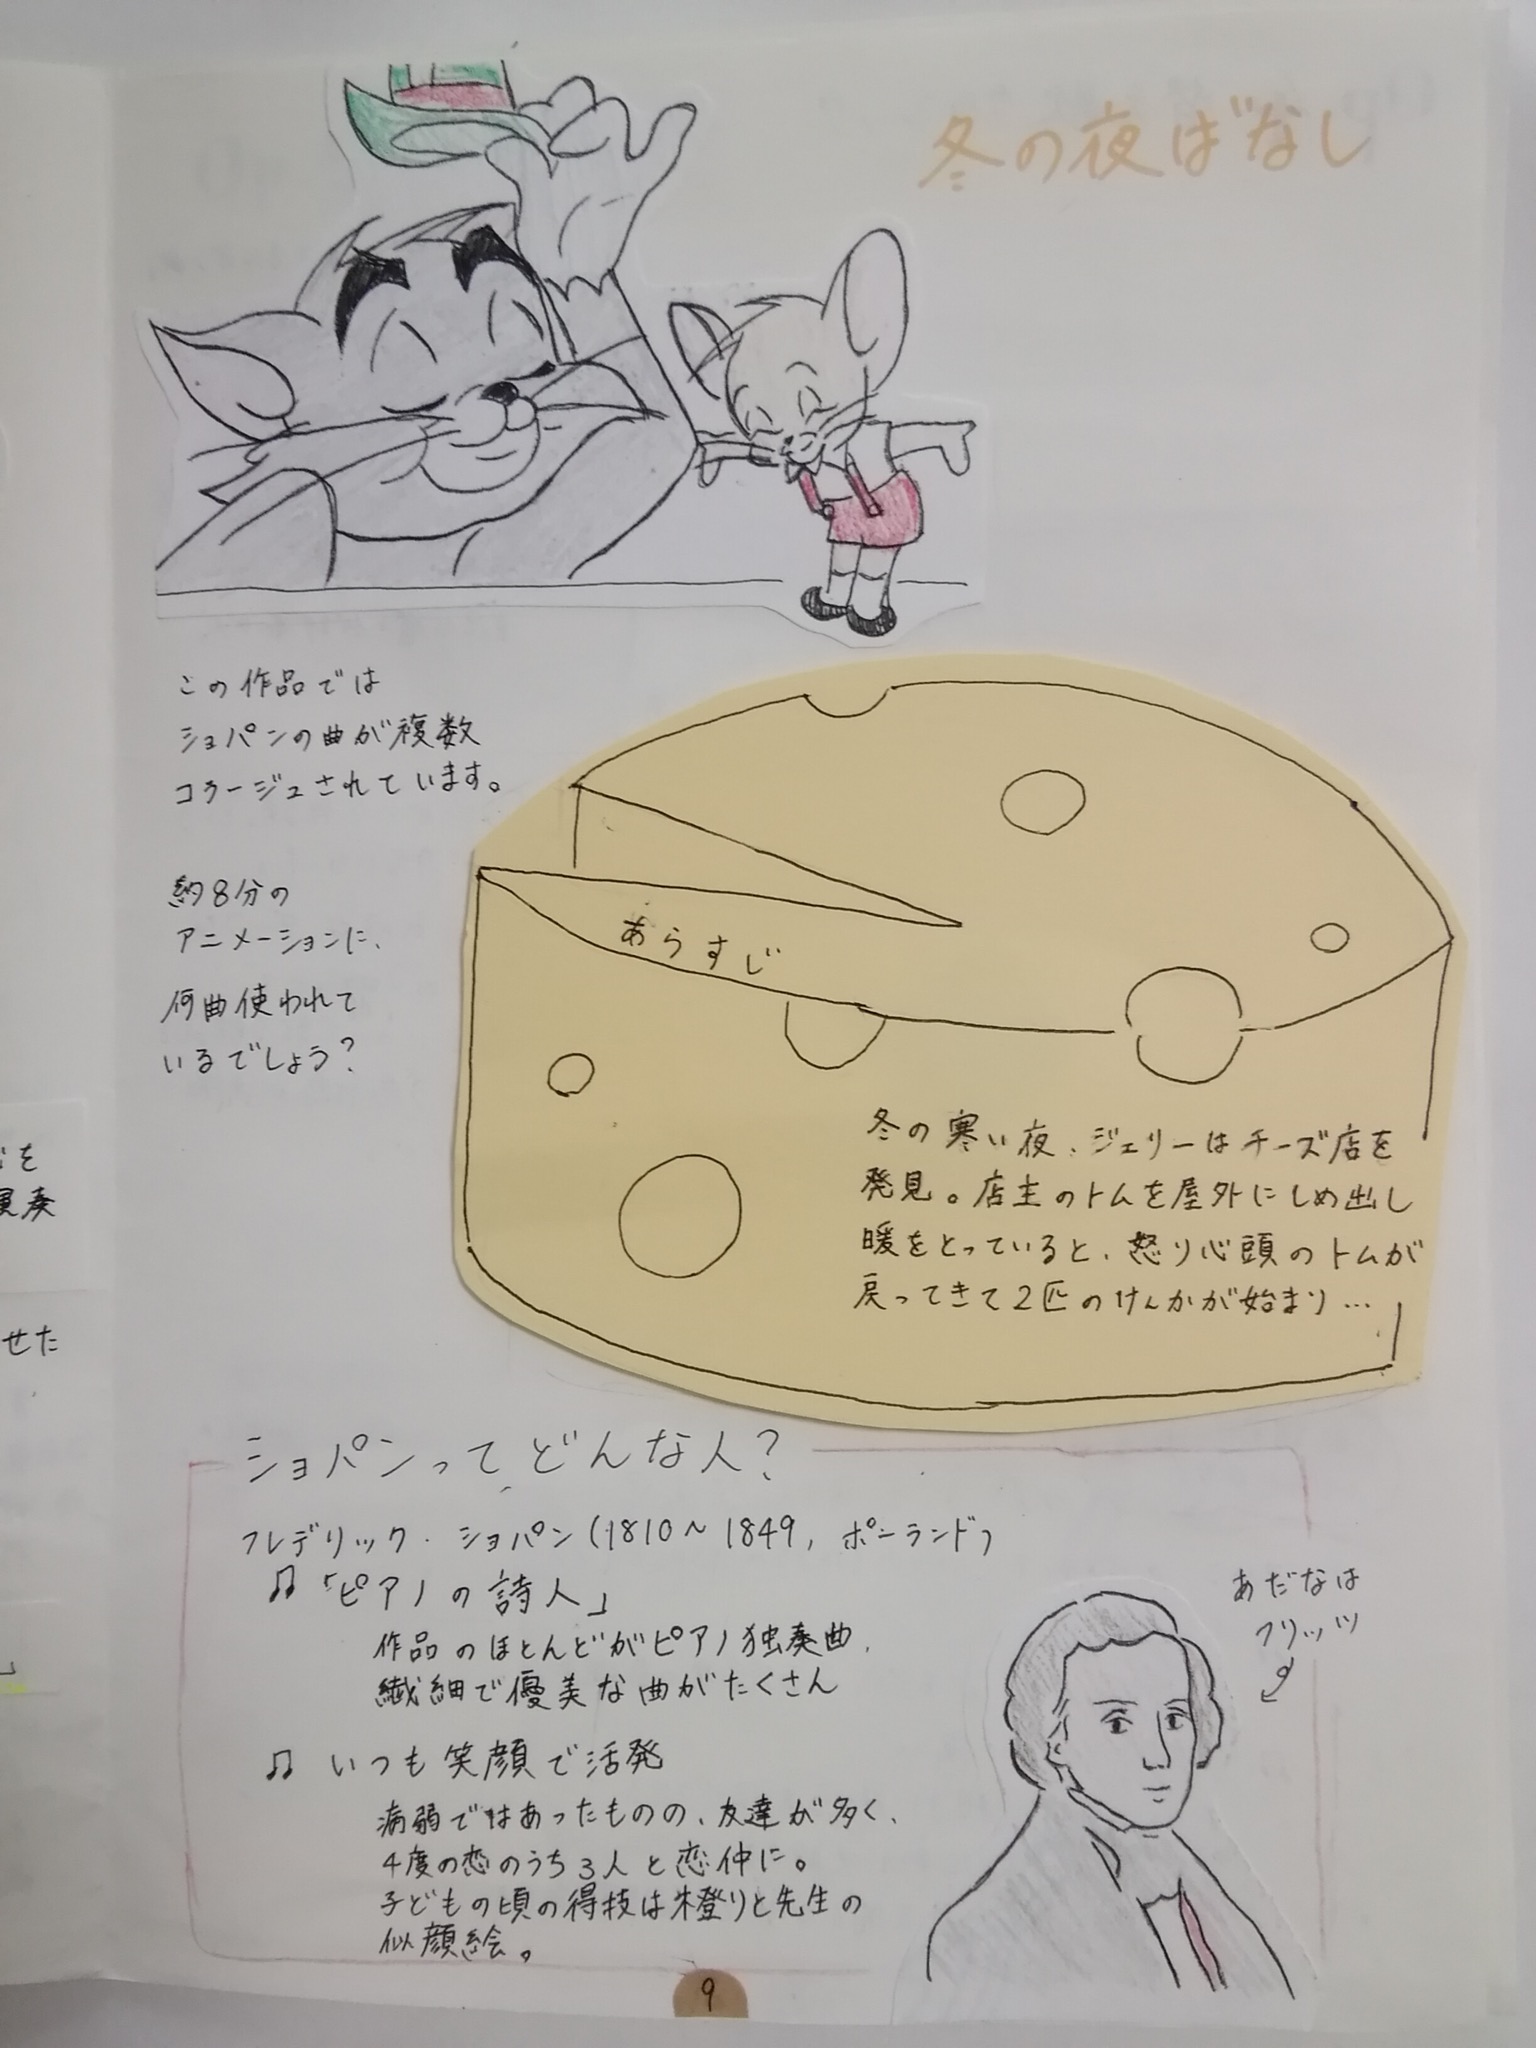 冬の夜ばなし
この作品では
ショパンの曲が複数
コラージュされています。
約8分の
アニメーションに、
何曲使われて
いるでしょう?
あらすじ
冬の寒い夜、ジェリーはチーズ店を
発見。店主のトムを屋外にしめ出し
暖をとっていると、怒り心頭のトムが
戻ってきて2匹のけんかが始まり…
ショパンってどんな人?
フレデリック・ショパン(1810~1849, ポーランド)
♫「ピアノの詩人」
作品のほとんどがピアノ独奏曲、
繊細で優美な曲がたくさん
♫ いつも笑顔で活発
病弱ではあったものの、友達が多く、
4度の恋のうち3人と恋仲に。
子どもの頃の得技は木登りと先生の
似顔絵。
あだなは
フリッツ
9
を
演奏
せた